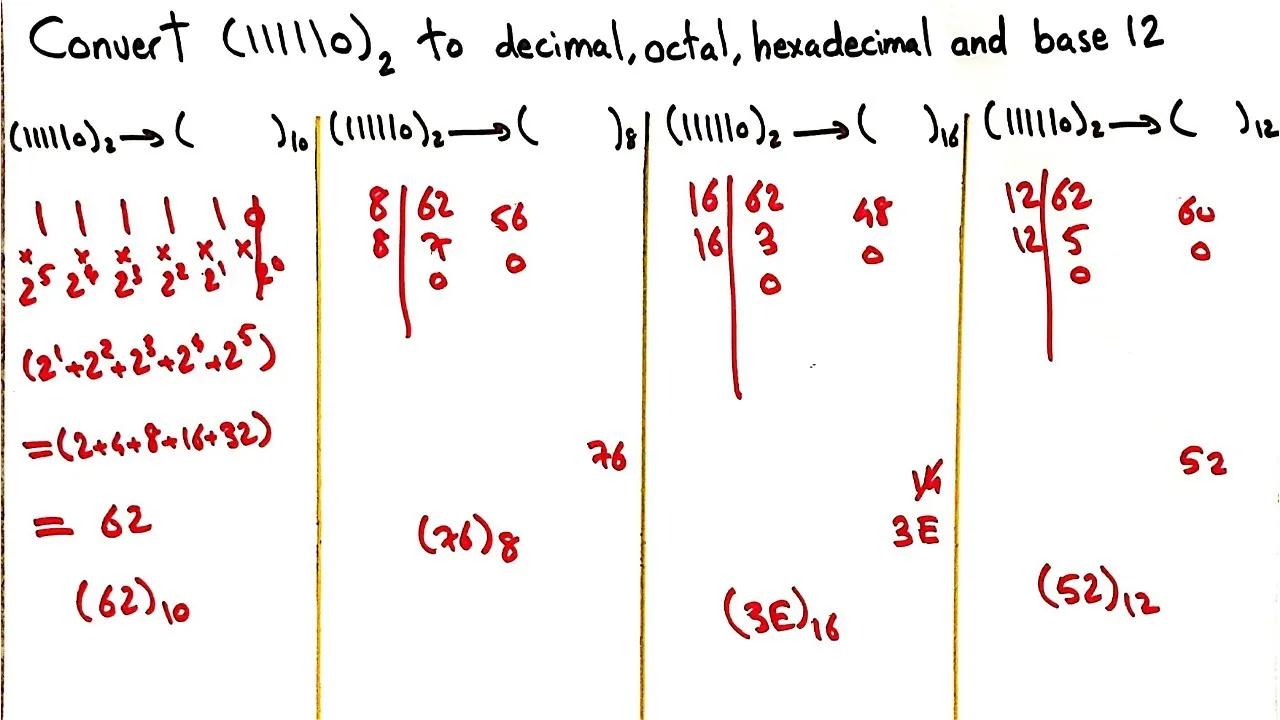 Convert (111110)₂ to decimal, octal, hexadecimal and base 12
(111110)₂ → (      )₁₀
1 1 1 1 1 0
x x x x x x
2⁵ 2⁴ 2³ 2² 2¹ 2⁰
(2¹+2²+2³+2⁴+2⁵)
=(2+4+8+16+32)
= 62
(62)₁₀
(111110)₂ → (      )₈
8 | 62 56
8 | 7 0
0
76
(76)₈
(111110)₂ → (      )₁₆
16 | 62 48
16 | 3 0
0
14
3E
(3E)₁₆
(111110)₂ → (      )₁₂
12 | 62 60
12 | 5 0
0
52
(52)₁₂